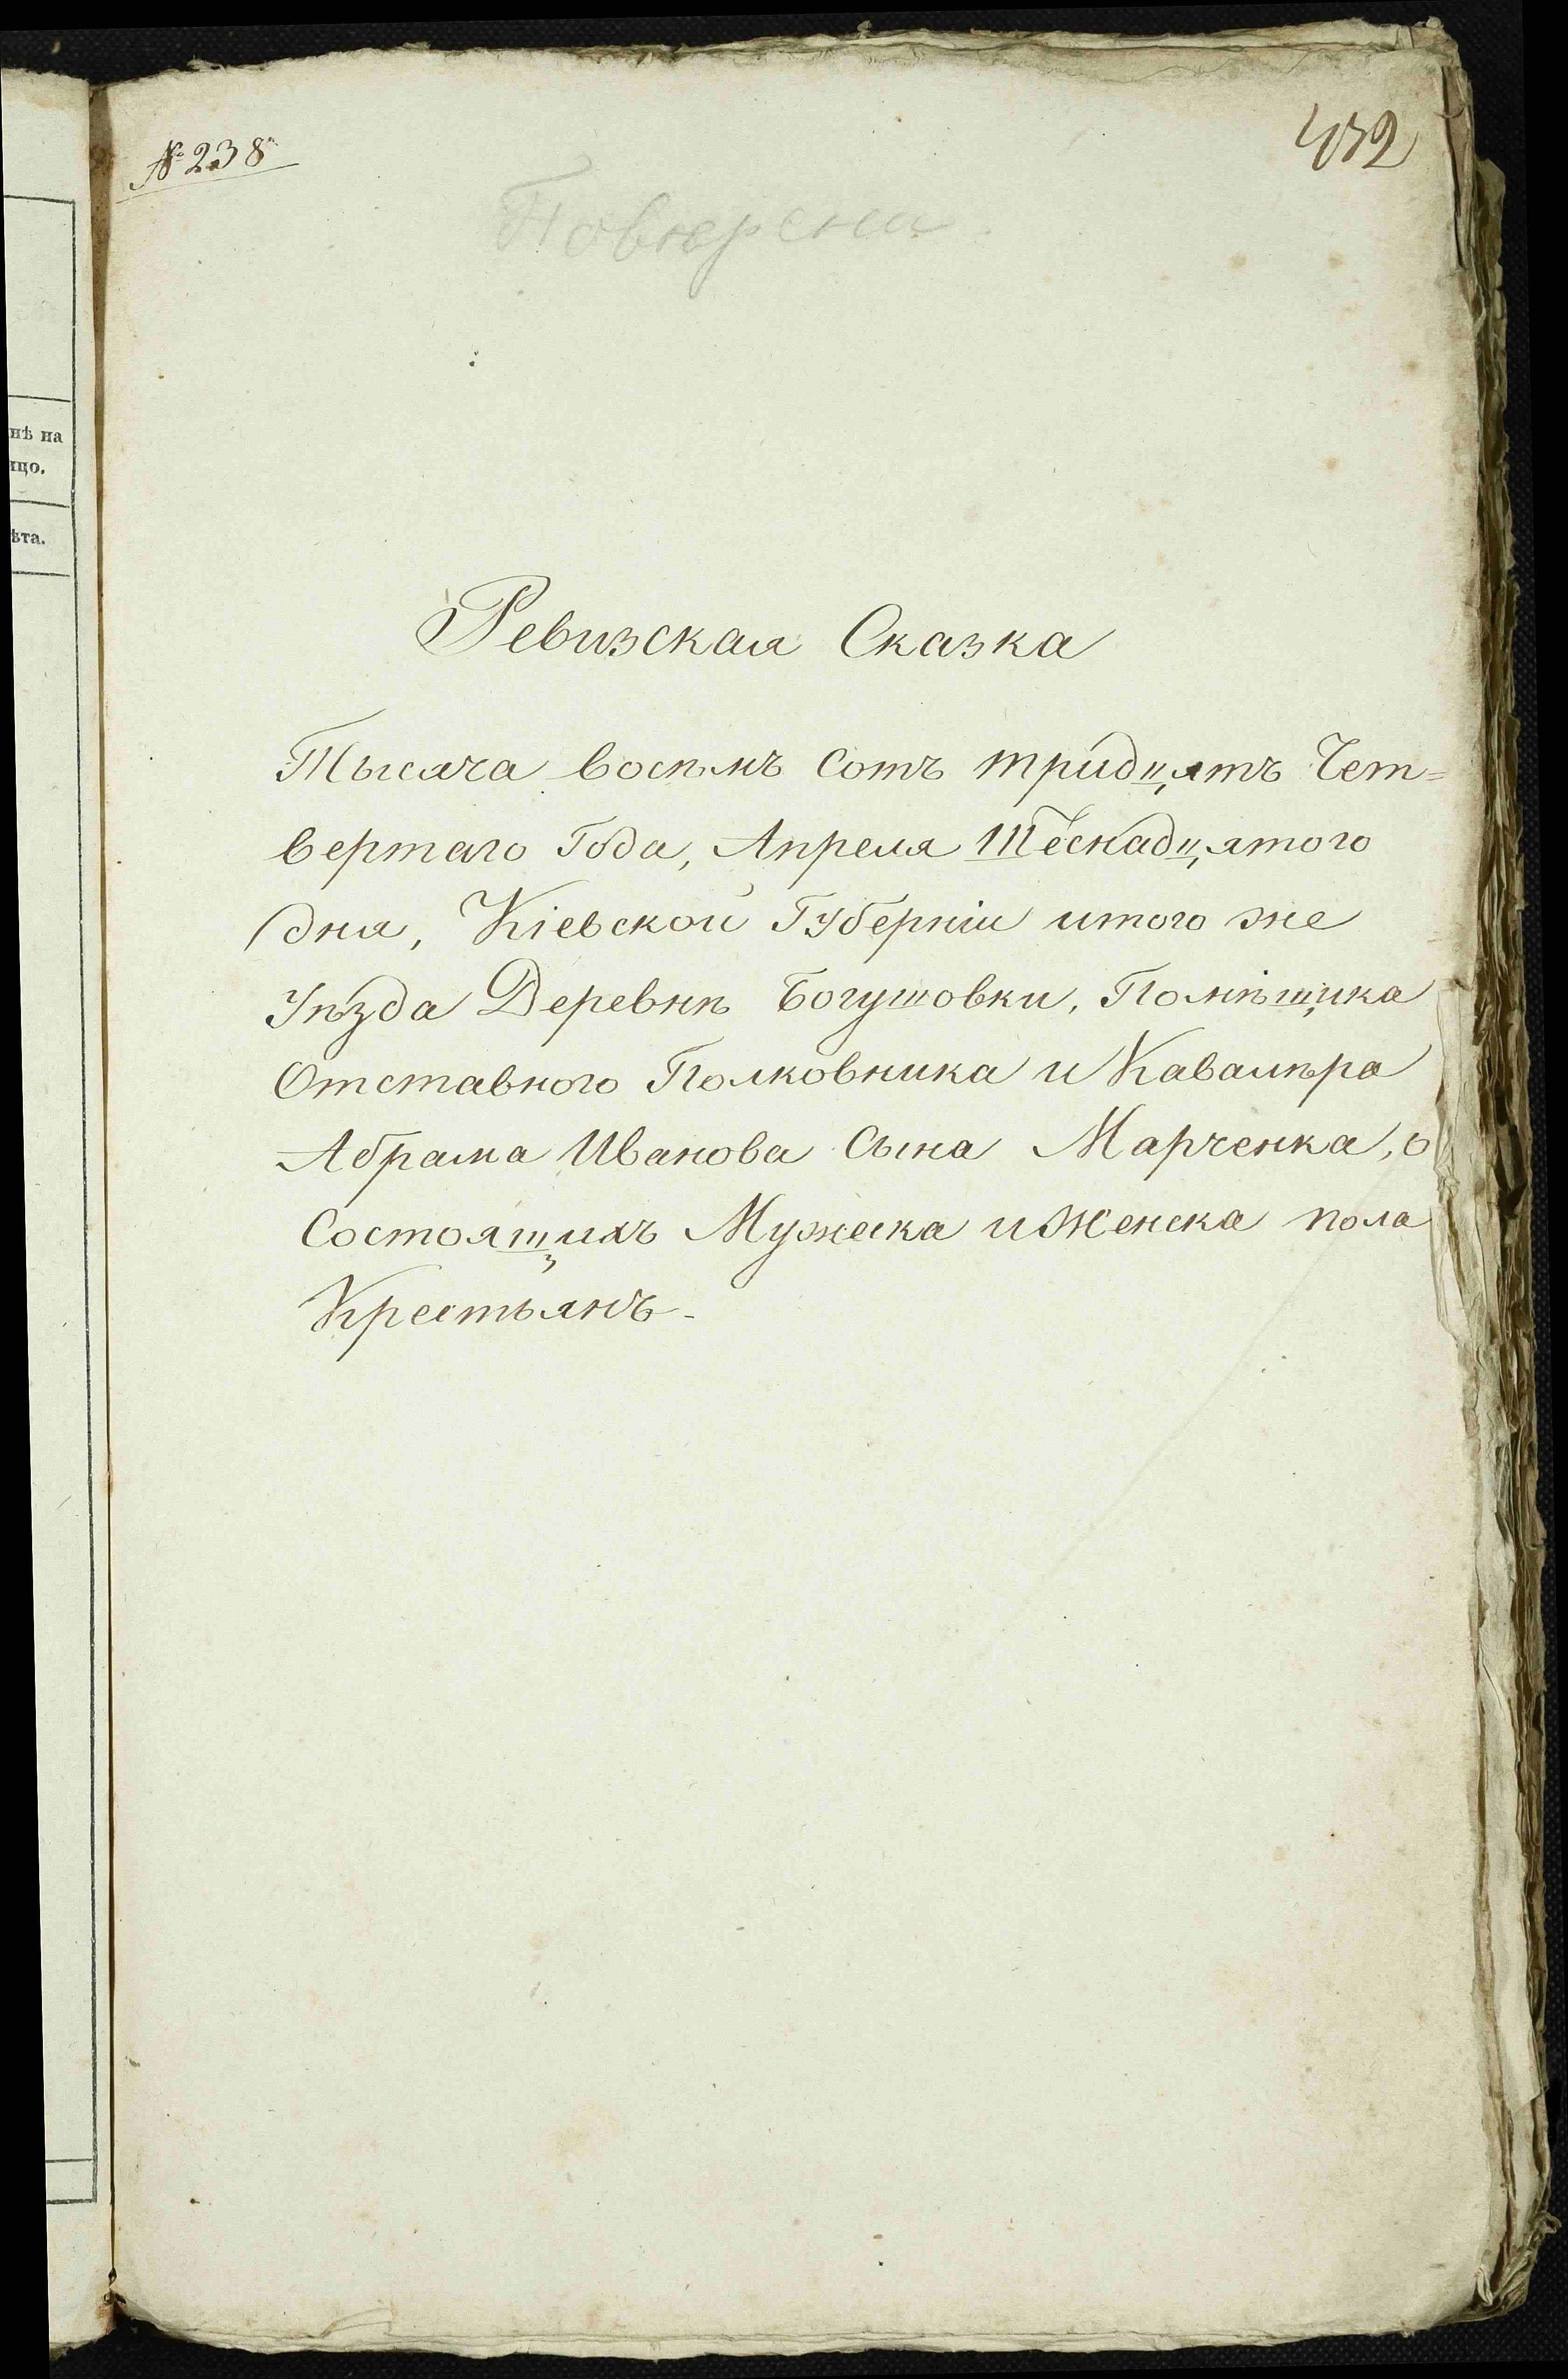 № 238
432
Повѣрена
нѣ на
ицо.
ѣта.
Ревизская Сказка
Тысяча восѣмъ сотъ тридцятъ Чет=
вертаго Года, Апреля Шеснадцятого
дня, Кіевской Губерніи итого же
Уѣзда Деревнѣ Богушовки, Помѣщика
Отставного Полковника и Кавалѣра
Абрама Иванова Сына Марченка, о
Состоящихъ Мужеска и Женска пола
Крестьянъ.